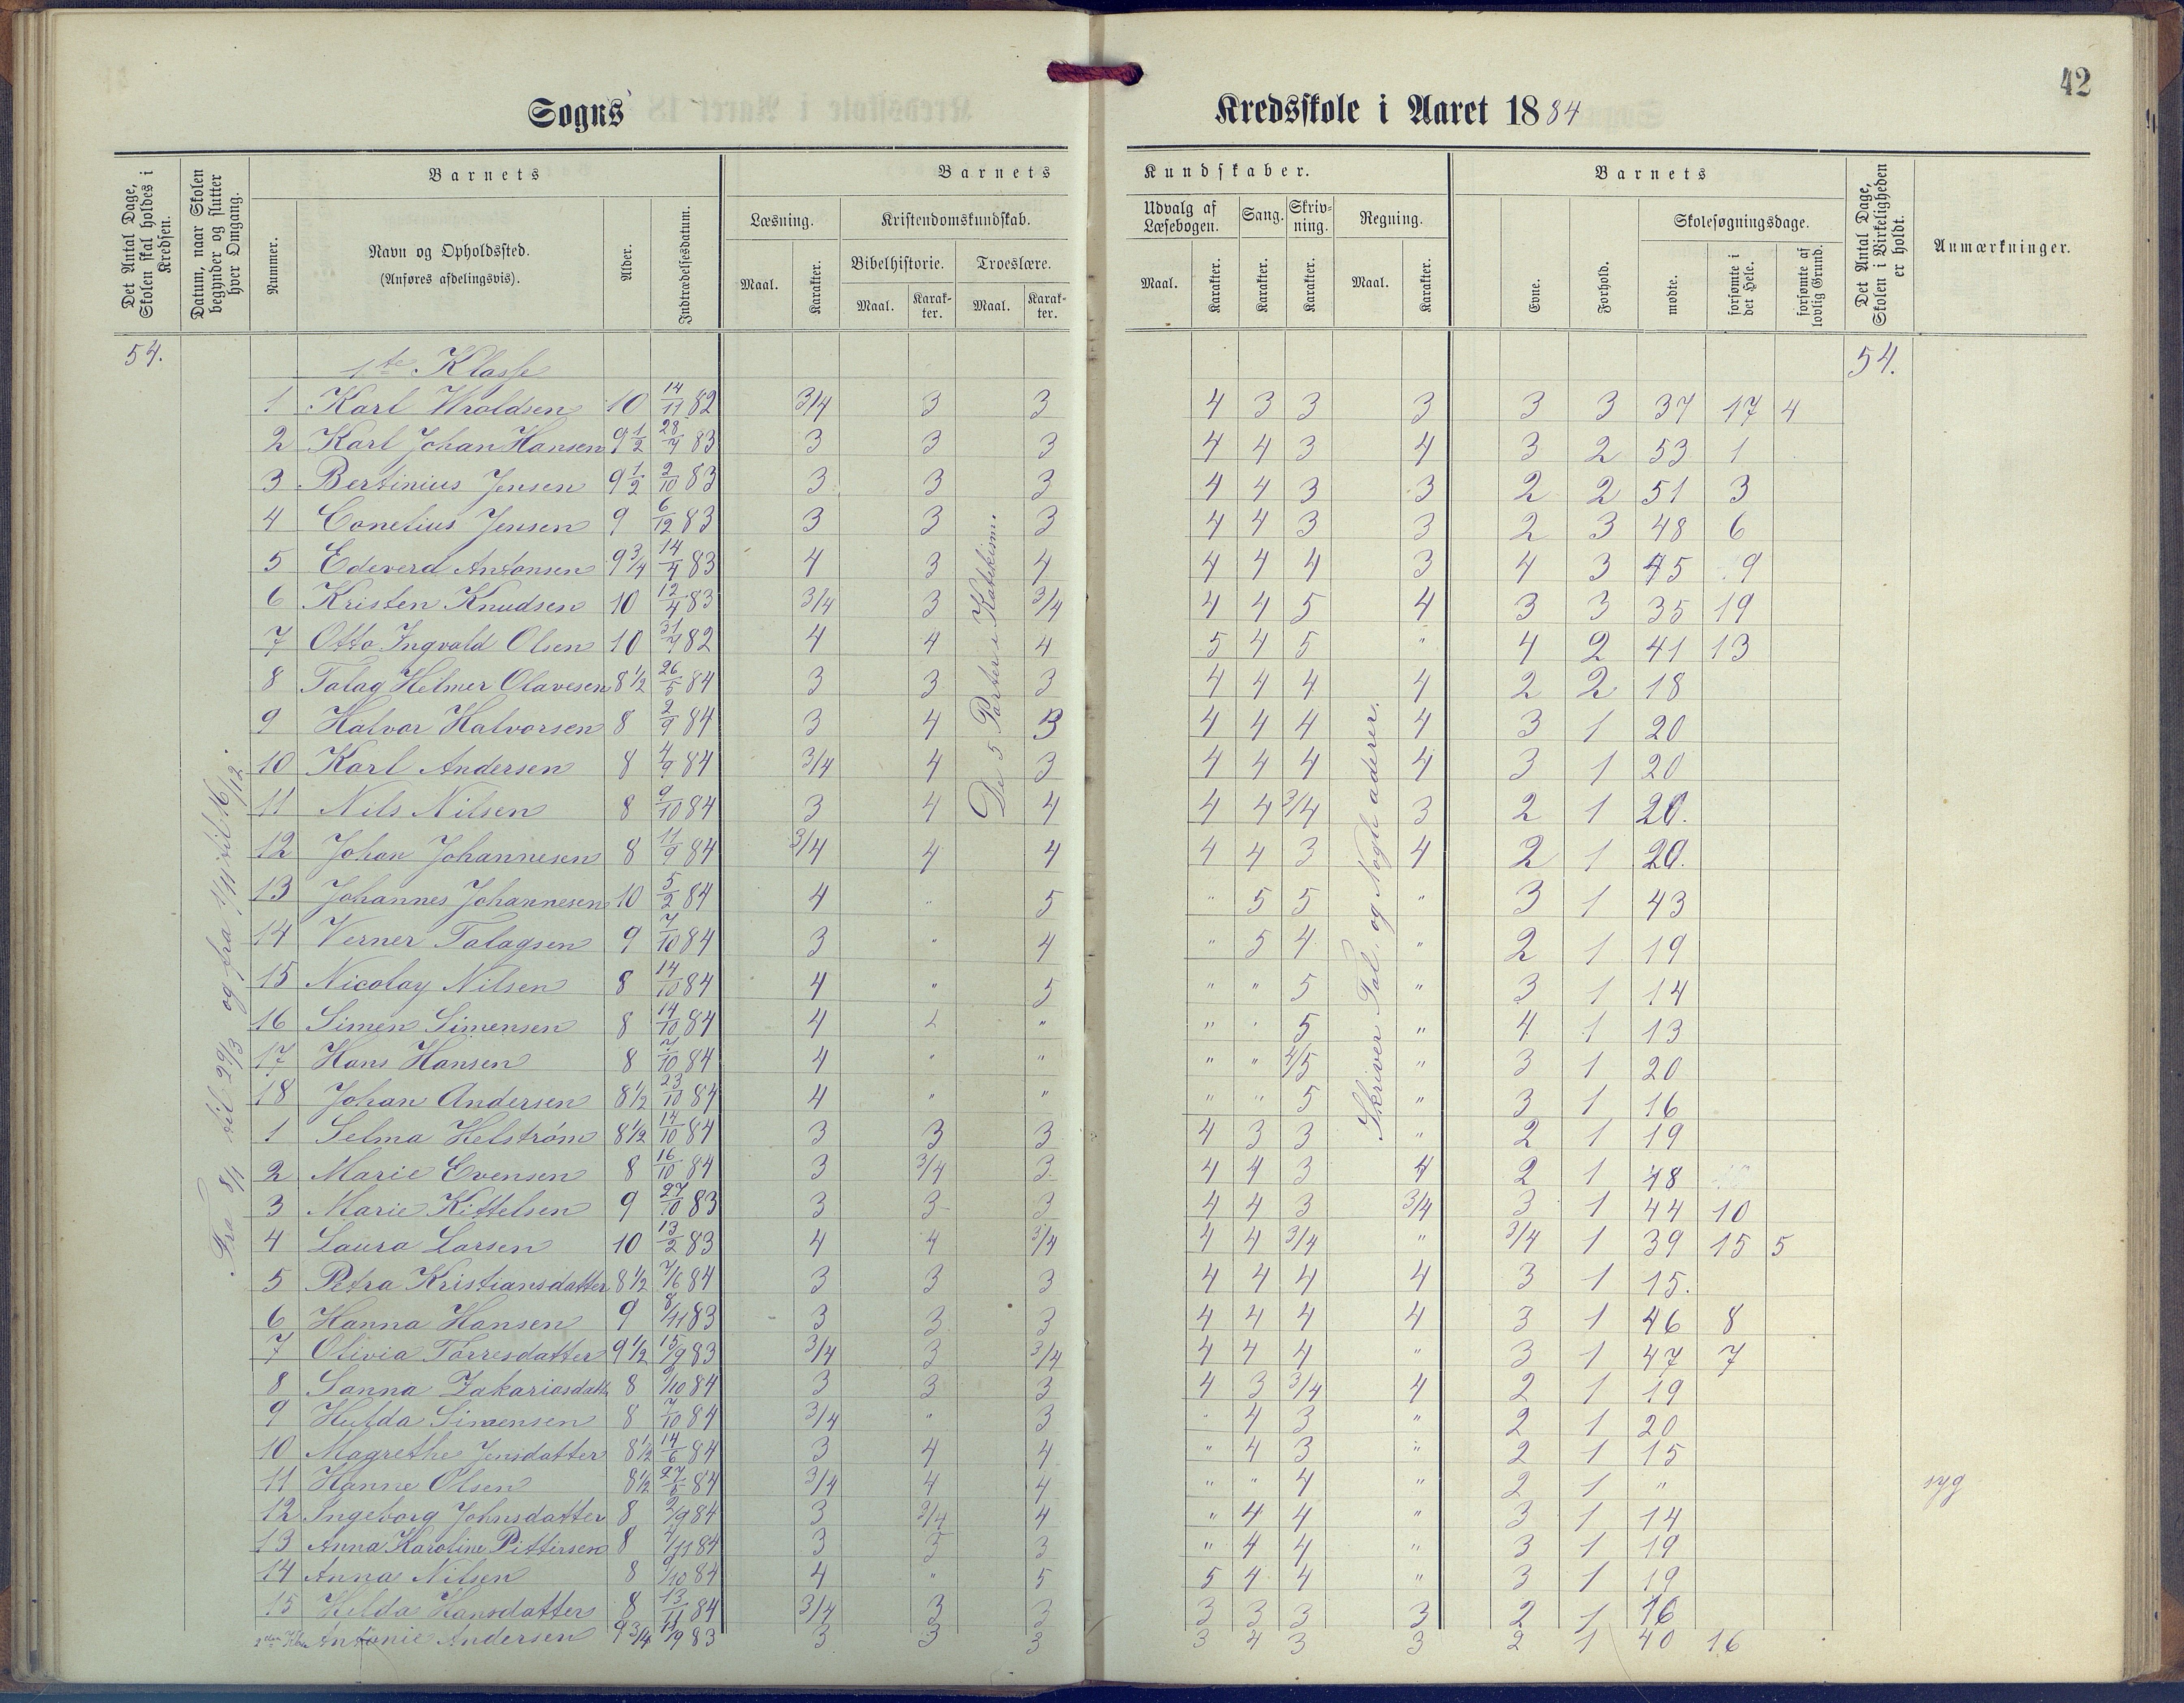 42
Sogns Kredsskole i Aaret 1884
Det Antal Dage, Skolen skal holdes i Kredsen.
Datum, naar Skolen begynder og slutter hver Omgang.
Barnets
Nummer.
Navn og Opholdssted.
(Anføres afdelingsvis).
Alder.
Indtrædelsesdatum.
Barnets Kundskaber.
Læsning.
Maal. Karakter.
Kristendomskundskab.
Bibelhistorie. Troeslære.
Maal. Karakter. Maal. Karakter.
Udvalg af Læsebogen. Sang. Skrivning. Regning.
Maal. Karakter. Karakter. Karakter. Maal. Karakter.
Barnets
Evne. Forhold.
Skolesøgningsdage.
mødte. forsømte i det Hele. forsømte af lovlig Grund.
Det Antal Dage, Skolen i Virkeligheden er holdt.
Anmærkninger.
54. 1te Klasse 54.
Fra 8/1 til 29/3 og fra 1/11 til 16/12.
De 5 Parter i Katekism.
Skriver Tal. og Nogle aderer.
1 Karl Wroldsen 10 14/11 82 3/4 3 3 4 3 3 3 3 3 37 17 4
2 Karl Johan Hansen 9 1/2 28/4 83 3 3 3 4 4 3 4 3 2 53 1
3 Bertinius Jensen 9 1/2 2/10 83 3 3 3 4 4 3 3 2 2 51 3
4 Conelius Jensen 9 6/12 83 3 3 3 4 4 3 3 2 3 48 6
5 Edeverd Antonsen 9 3/4 14/4 83 4 3 4 4 4 4 3 4 3 45 9
6 Kristen Knudsen 10 12/4 83 3/4 3 3/4 4 4 5 4 3 3 35 19
7 Otto Ingvald Olsen 10 31/7 82 4 4 4 5 4 5 " 4 2 41 13
8 Talag Helmer Olavesen 8 1/2 26/5 84 3 3 3 4 4 4 4 2 2 18
9 Halvor Halvorsen 8 2/9 84 3 4 3 4 4 4 4 3 1 20
10 Karl Andersen 8 4/9 84 3/4 4 3 4 4 4 4 3 1 20
11 Nils Nilsen 8 9/10 84 3 4 4 4 4 3/4 3 2 1 20.
12 Johan Johannesen 8 11/9 84 3/4 4 4 4 4 3 4 2 1 20.
13 Johannes Johannesen 10 5/2 84 4 " 5 " 5 5 " 3 1 43
14 Verner Talagsen 9 7/10 84 3 " 4 " 5 4 " 2 1 19
15 Nicolay Nilsen 8 14/10 84 4 " 5 " " 5 " 3 1 14
16 Simen Simensen 8 14/10 84 4 " " " 5 " 4 1 13
17 Hans Hansen 8 7/10 84 4 " " " " 4/5 " 3 1 20
18 Johan Andersen 8 1/2 23/10 84 4 " " " " 5 " 3 1 16
1 Selma Helstrøm 8 1/2 14/10 84 3 3 3 4 3 3 " 2 1 19
2 Marie Evensen 8 16/10 84 3 3/4 3 4 4 3 4 2 1 18
3 Marie Kittelsen 9 27/10 83 3 3 3 4 4 3 3/4 3 1 44 10
4 Laura Larsen 10 13/2 83 4 4 3/4 4 4 3/4 " 3/4 1 39 15 5
5 Petra Kristiansdatter 8 1/2 7/6 84 3 3 3 4 4 4 4 3 1 15.
6 Hanna Hansen 9 8/11 83 3 3 3 4 4 4 4 3 1 46 8
7 Olivia Tørresdatter 9 1/2 15/9 83 3/4 3 3/4 4 4 4 " 3 1 47 7
8 Sanna Zakariasdatt 8 9/10 84 3 3 3 4 3 3/4 4 2 1 19
9 Hulda Simensen 8 7/10 84 3/4 " 3 " 4 3 " 2 1 20
10 Magrethe Jensdatter 8 1/2 14/6 84 3 4 4 " 4 3 " 2 1 15
11 Hanne Olsen 8 1/2 27/5 84 3/4 4 4 " " 4 " 2 1 " syg
12 Ingeborg Johnsdatter 8 2/9 84 3 3/4 4 " 4 4 " 3 1 14
13 Anna Karoline Pittersen 8 4/11 84 3 3 3 " 4 4 " 3 1 19
14 Anna Nilsen 8 9/10 84 4 " 5 5 4 4 " 3 1 19
15 Helda Hansdatter 8 13/11 84 3/4 3 3 3 3 3 3 2 1 16
2den Klas Antonie Andersen 9 3/4 11/9 83 3 3 3 3 4 3 3 2 1 40 16